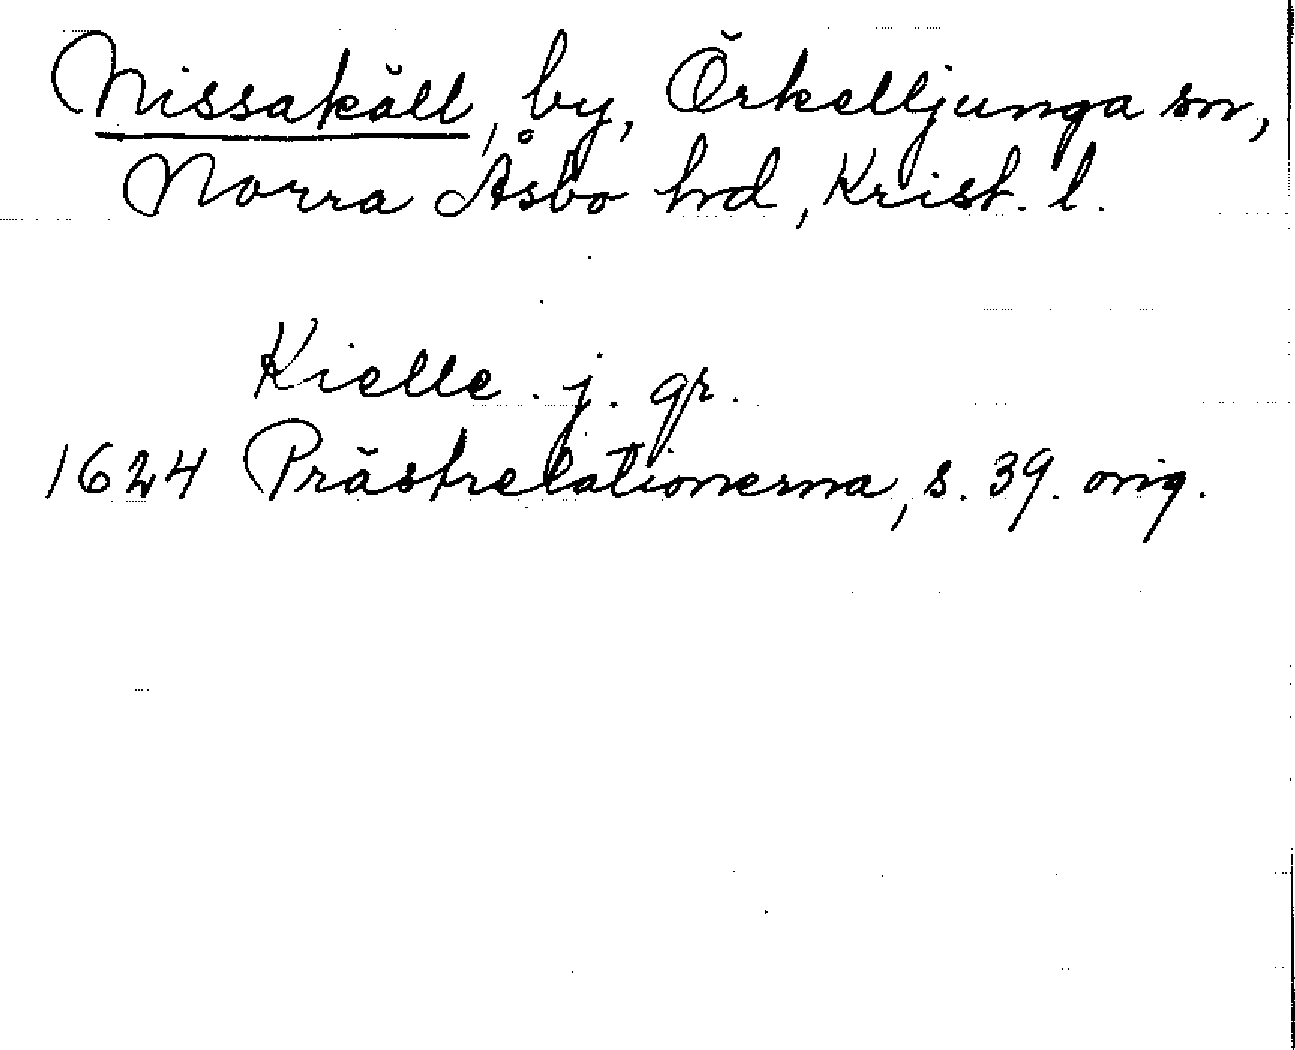 Nissakäll, by, Örkelljunga sn,
Norra Åsbo hrd, Krist. l.
Kielle. j. gr.
1624 Prästrelationerna, s. 39. orig.